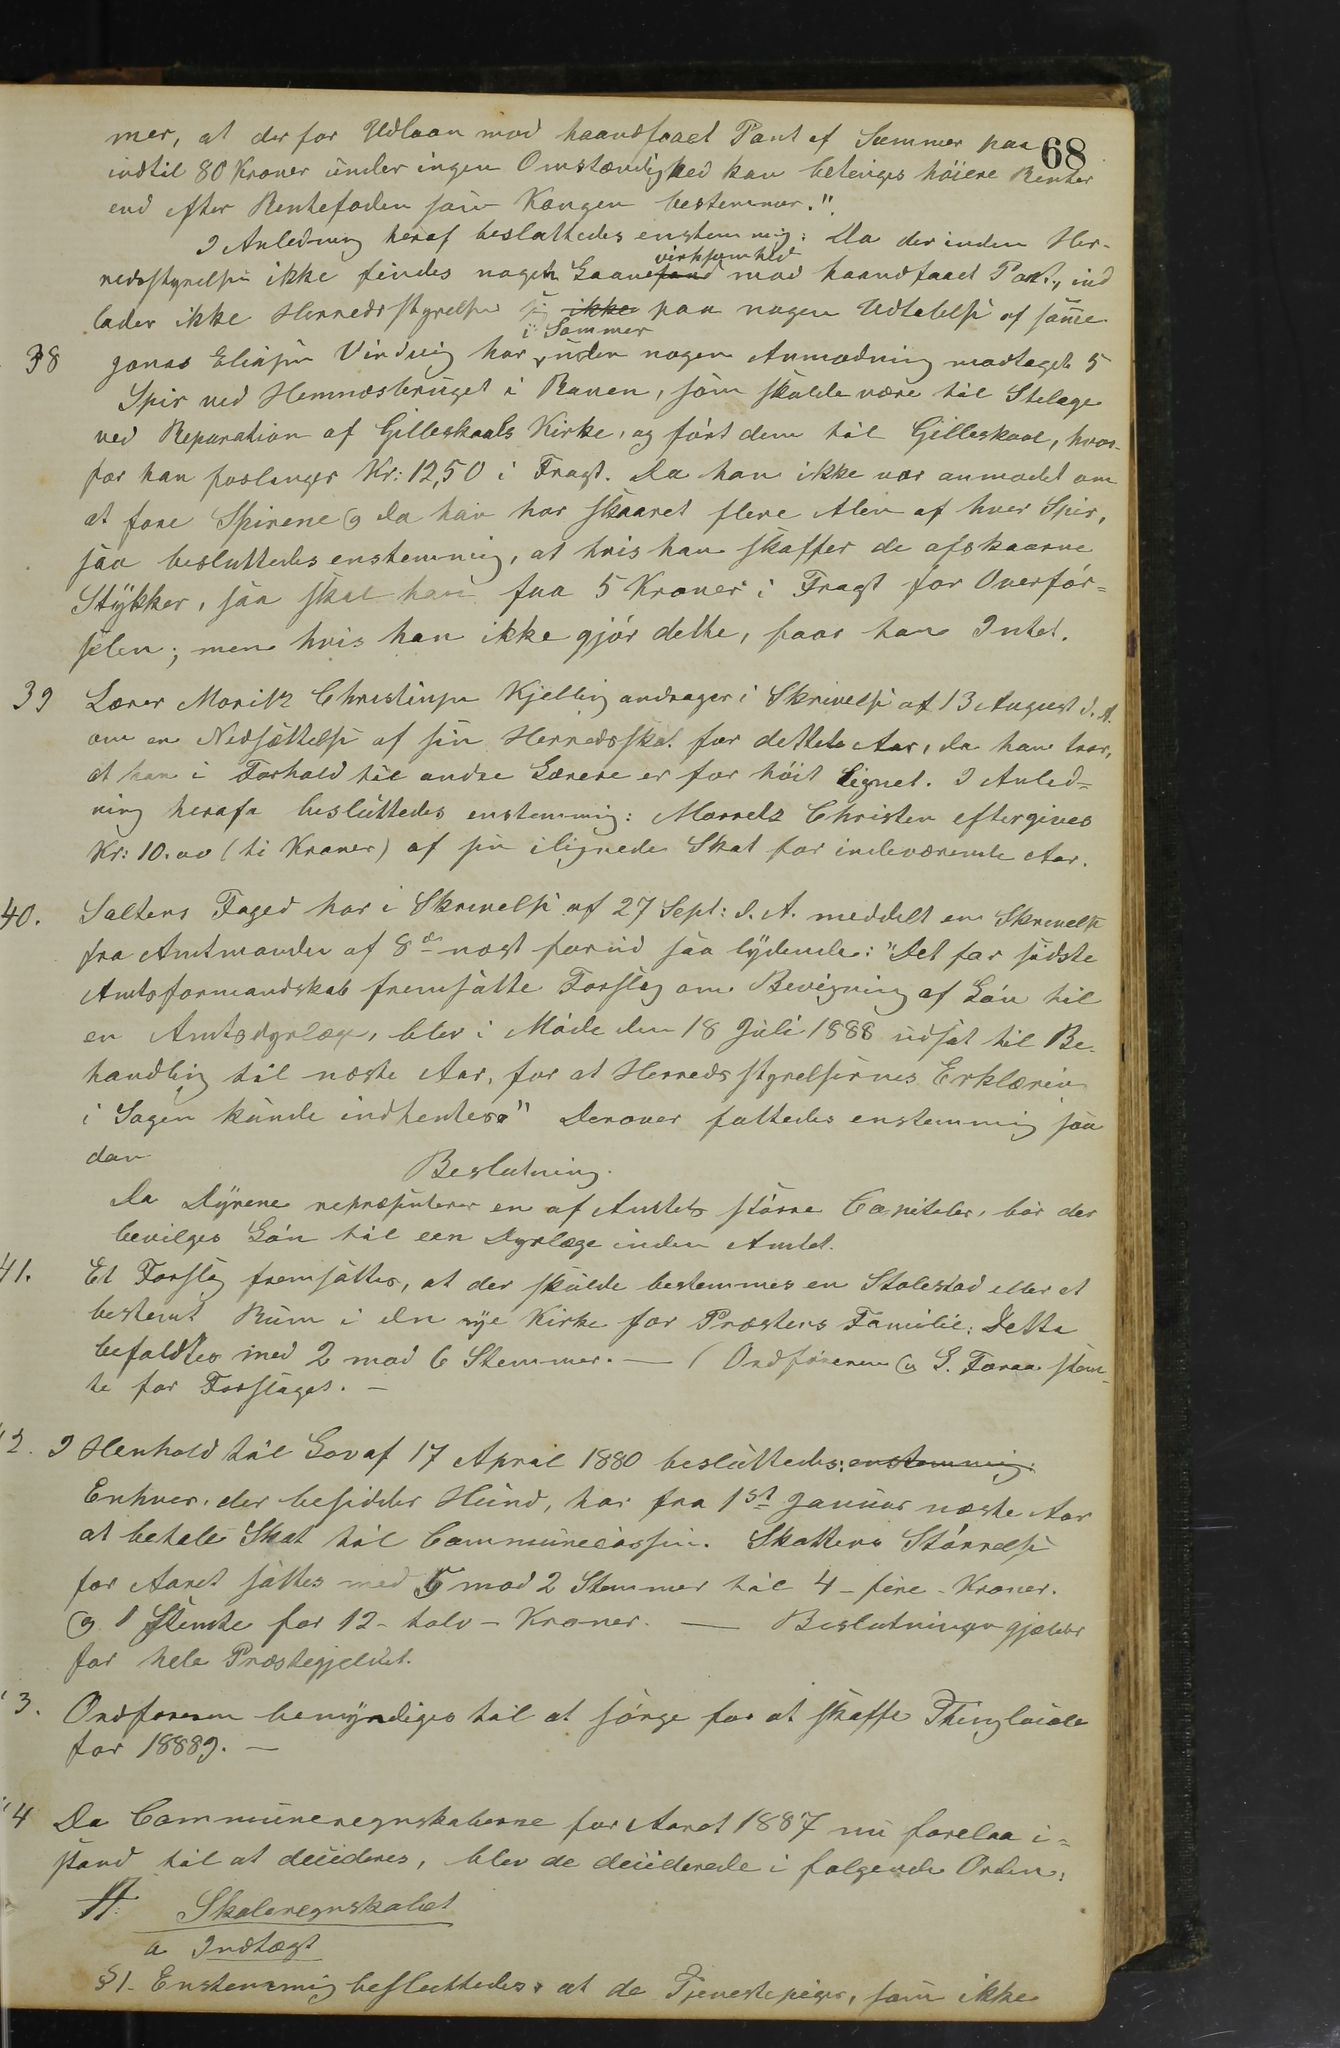 68
mer, at der for Udlaan mod haandfaaet Pant af Summer paa
indtil 80 Kroner under ingen Omstændighed kan betinges høiere Renter
end efter Rentefoden som Kongen bestemmer."
I Anledning heraf besluttedes enstemmig: Da der inden Her-
redsstyrelsen ikke findes nogen Laanevirksomhed mod haandfaaet Pant, ind
lader ikke Herredsstyrelsen sig ikke paa nogen Udtalelse af samme
38 Jonas Eliasen Vindvig har i Sommer uden nogen Anmodning modtaget 5
Spir ved Hemnæsbruget i Ranen, som skulde være til Stelage
ved Reparation af Gilleskaals Kirke, og ført dem til Gilleskaal, hvor-
for han forlanger Kr: 12,50 i Fragt. Da han ikke var anmodet om
at føre Spirene og da han har skaaret flere Alen af hver Spir,
saa besluttedes enstemmig, at hvis han skaffer de afskaarne
Stykker, saa skal han faa 5 Kroner i Fragt for Overfør-
selen; men hvis han ikke gjør dette, faar han Intet.
39 Lærer Moritz Christensen Kjelling andrager i Skrivelse af 13 August d. A.
om en Nedsættelse af sin Herredsskat for dettete Aar, da han tror,
at han i Forhold til andre Lærere er for høit lignet. I Anled-
ning herafa besluttedes enstemmig: Morretz Christen eftergives
Kr: 10.00 (ti Kroner) af sin ilignede Skat for indeværende Aar.
40. Saltens Foged har i Skrivelse af 27 Sept: d. A. meddelt en Skrivelse
fra Amtmanden af 8de næst forud saa lydende: "Det for sidste
Amtsformandskab fremsatte Forslag om Bevigning af Løn til
en Amtsdyrlæge, blev i Møde den 18 Juli 1888 udsat til Be-
handling til næste Aar, for at Herredsstyrelsernes Erklæring
i Sagen kunde indhentes." Derover fattedes enstemmig saa
dan
Beslutning.
Da Dyrene repræsenterer en af Amtets større Capitaler, bør der
bevilges Løn til een Dyrlæge inden Amtet.
41. Et Forslag fremsattes, at der skulde bestemmes en Stolestad eller et
bestemt Rum i den nye Kirke for Præstens Familie: Dette
befaldtes med 2 mod 6 Stemmer. — (Ordføreren og G. Foraa stem-
te for Forslaget. —
2. I Henhold til Lov af 17 April 1880 besluttedes: enstemmig:
Enhver, der besidder Hund, har fra 1st Januar næste Aar
at betale Skat til Communecassen. Skattens Størrelse
for Aaret sattes med 5 mod 2 Stemmer til 4 - fire - Kroner.
og 1 stemte for 12 - tolv - Kroner. — Beslutningen gjælder
for hele Præstegjeldet.
3. Ordføreren bemyndiges til at sørge for at skaffe Thinglocale
for 18889. —
4 Da Communeregnskaberne for Aaret 1887 nu forelaa i-
stand til at deciideres, blev de deciiderede i følgende Orden:
A. Skoleregnskabet
a Indtægt
§1. Enstemmig besluttedes, at de Tjenestepiger, som ikke